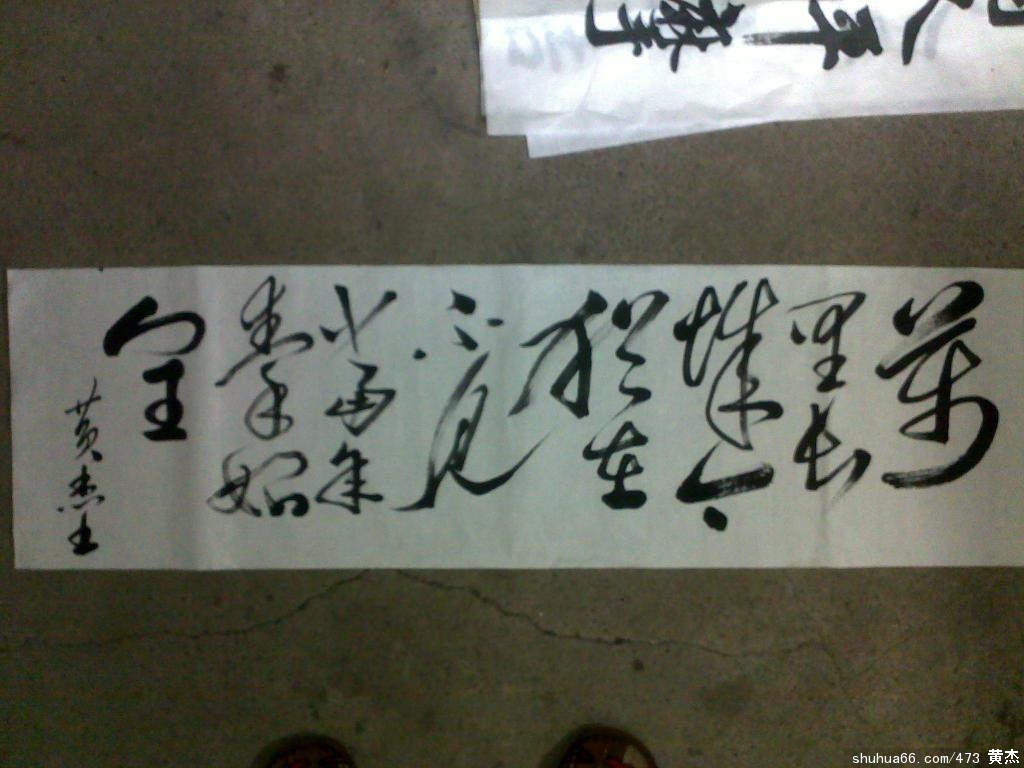 萬
里长
城今
犹在
不见
当年
秦始
皇
黄杰
shuhua66.com/473 黄杰